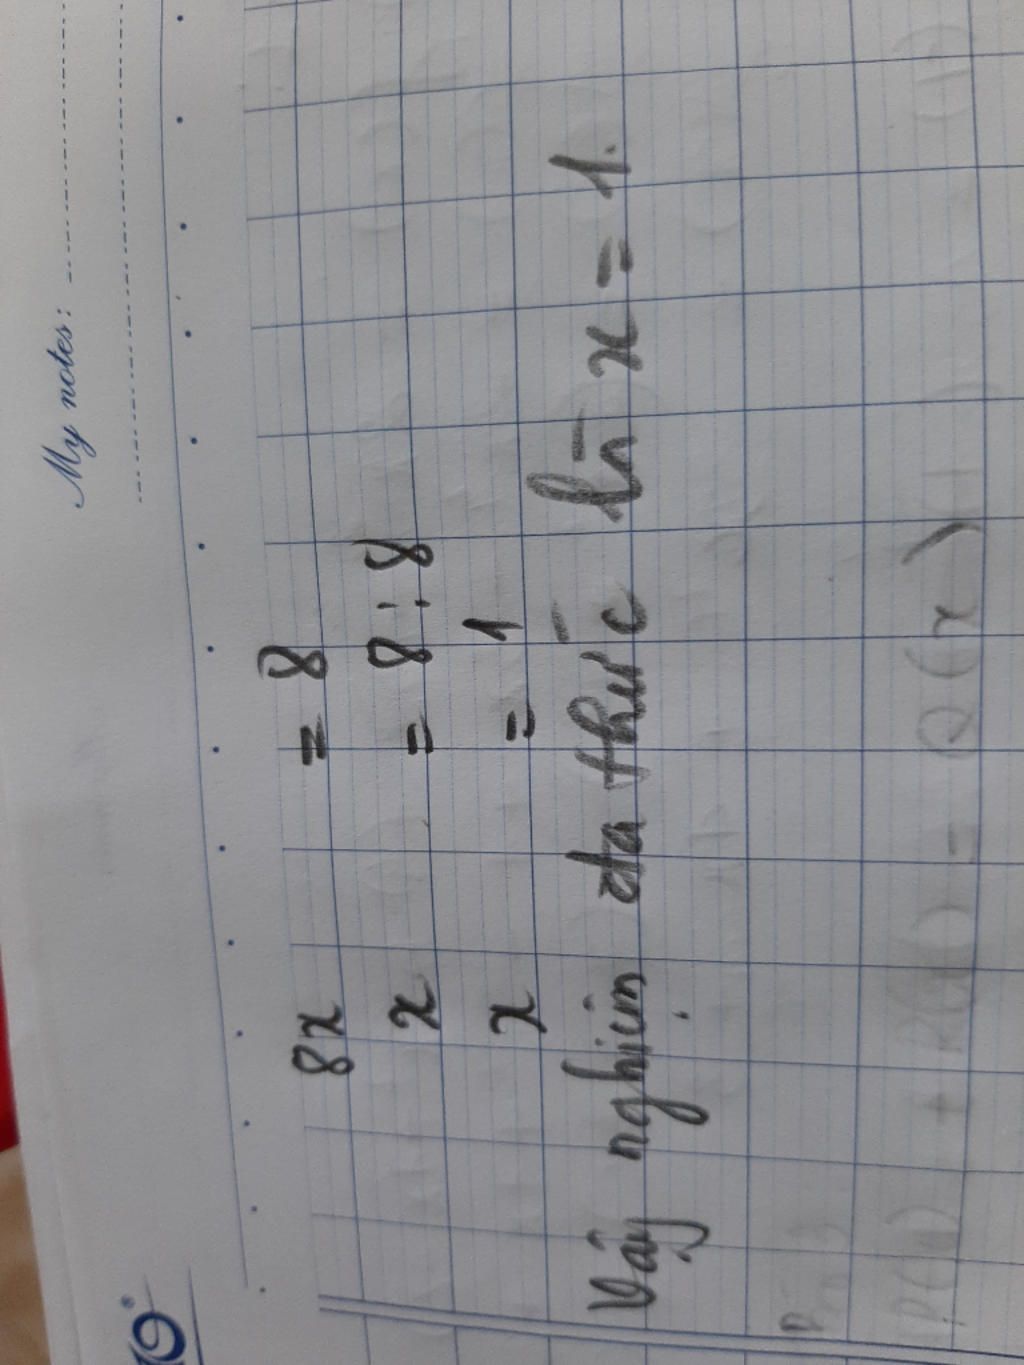 My notes:
8x = 8
x = 8 : 8
x = 1
Vậy nghiệm đa thức là x = 1.
Q(x)